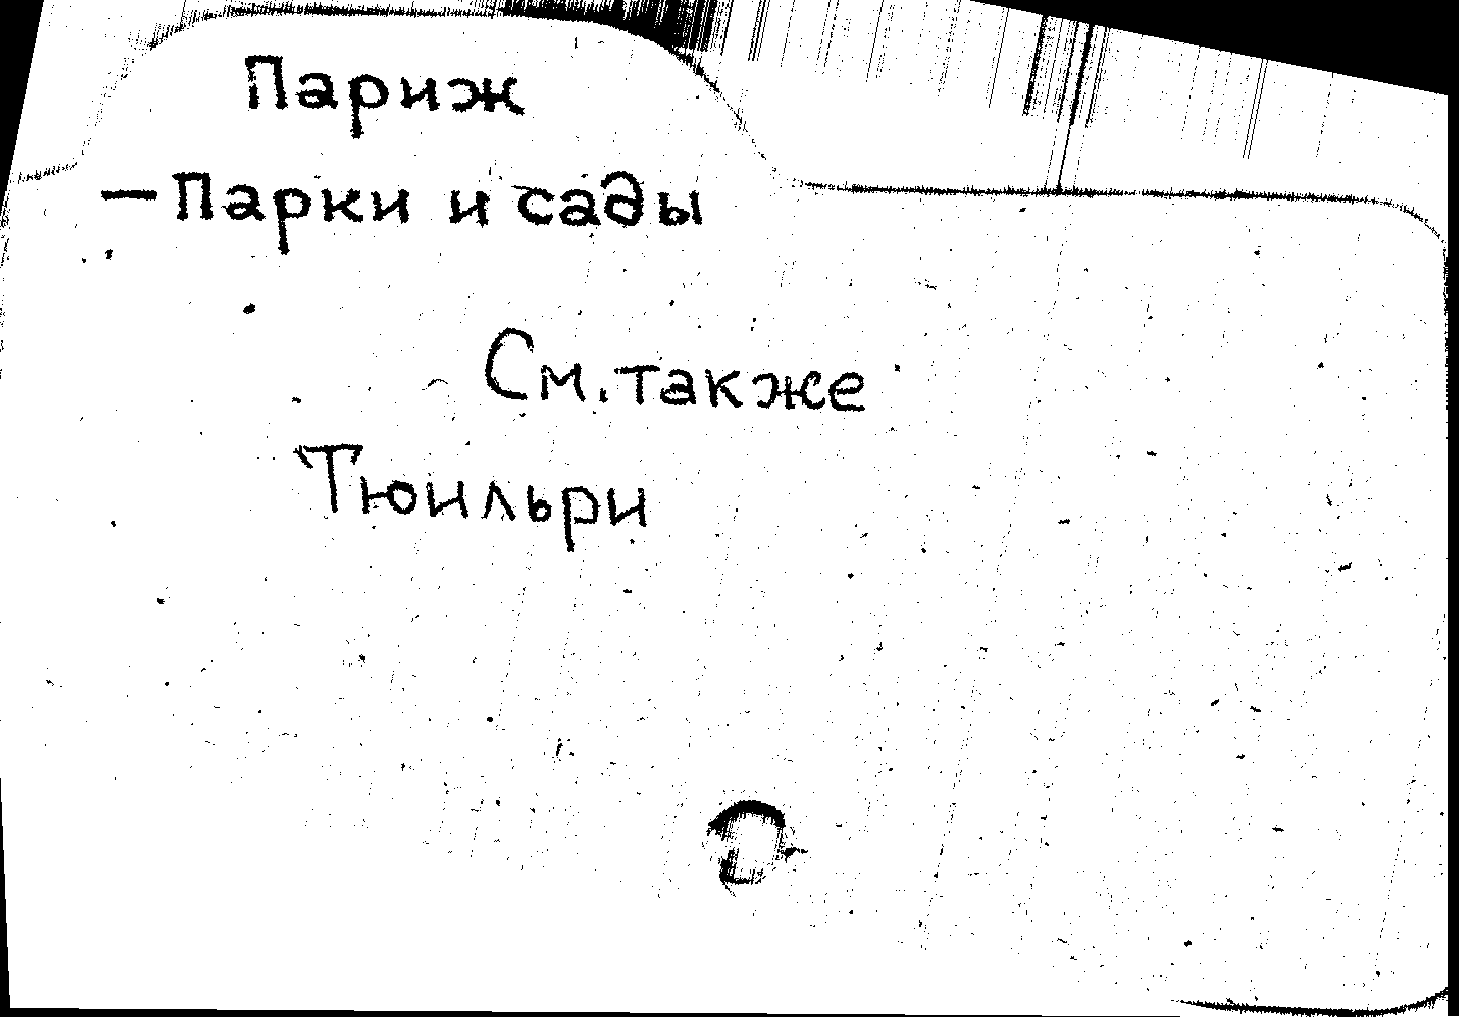 Париж
— Парки и сады
См. также
Тюильри